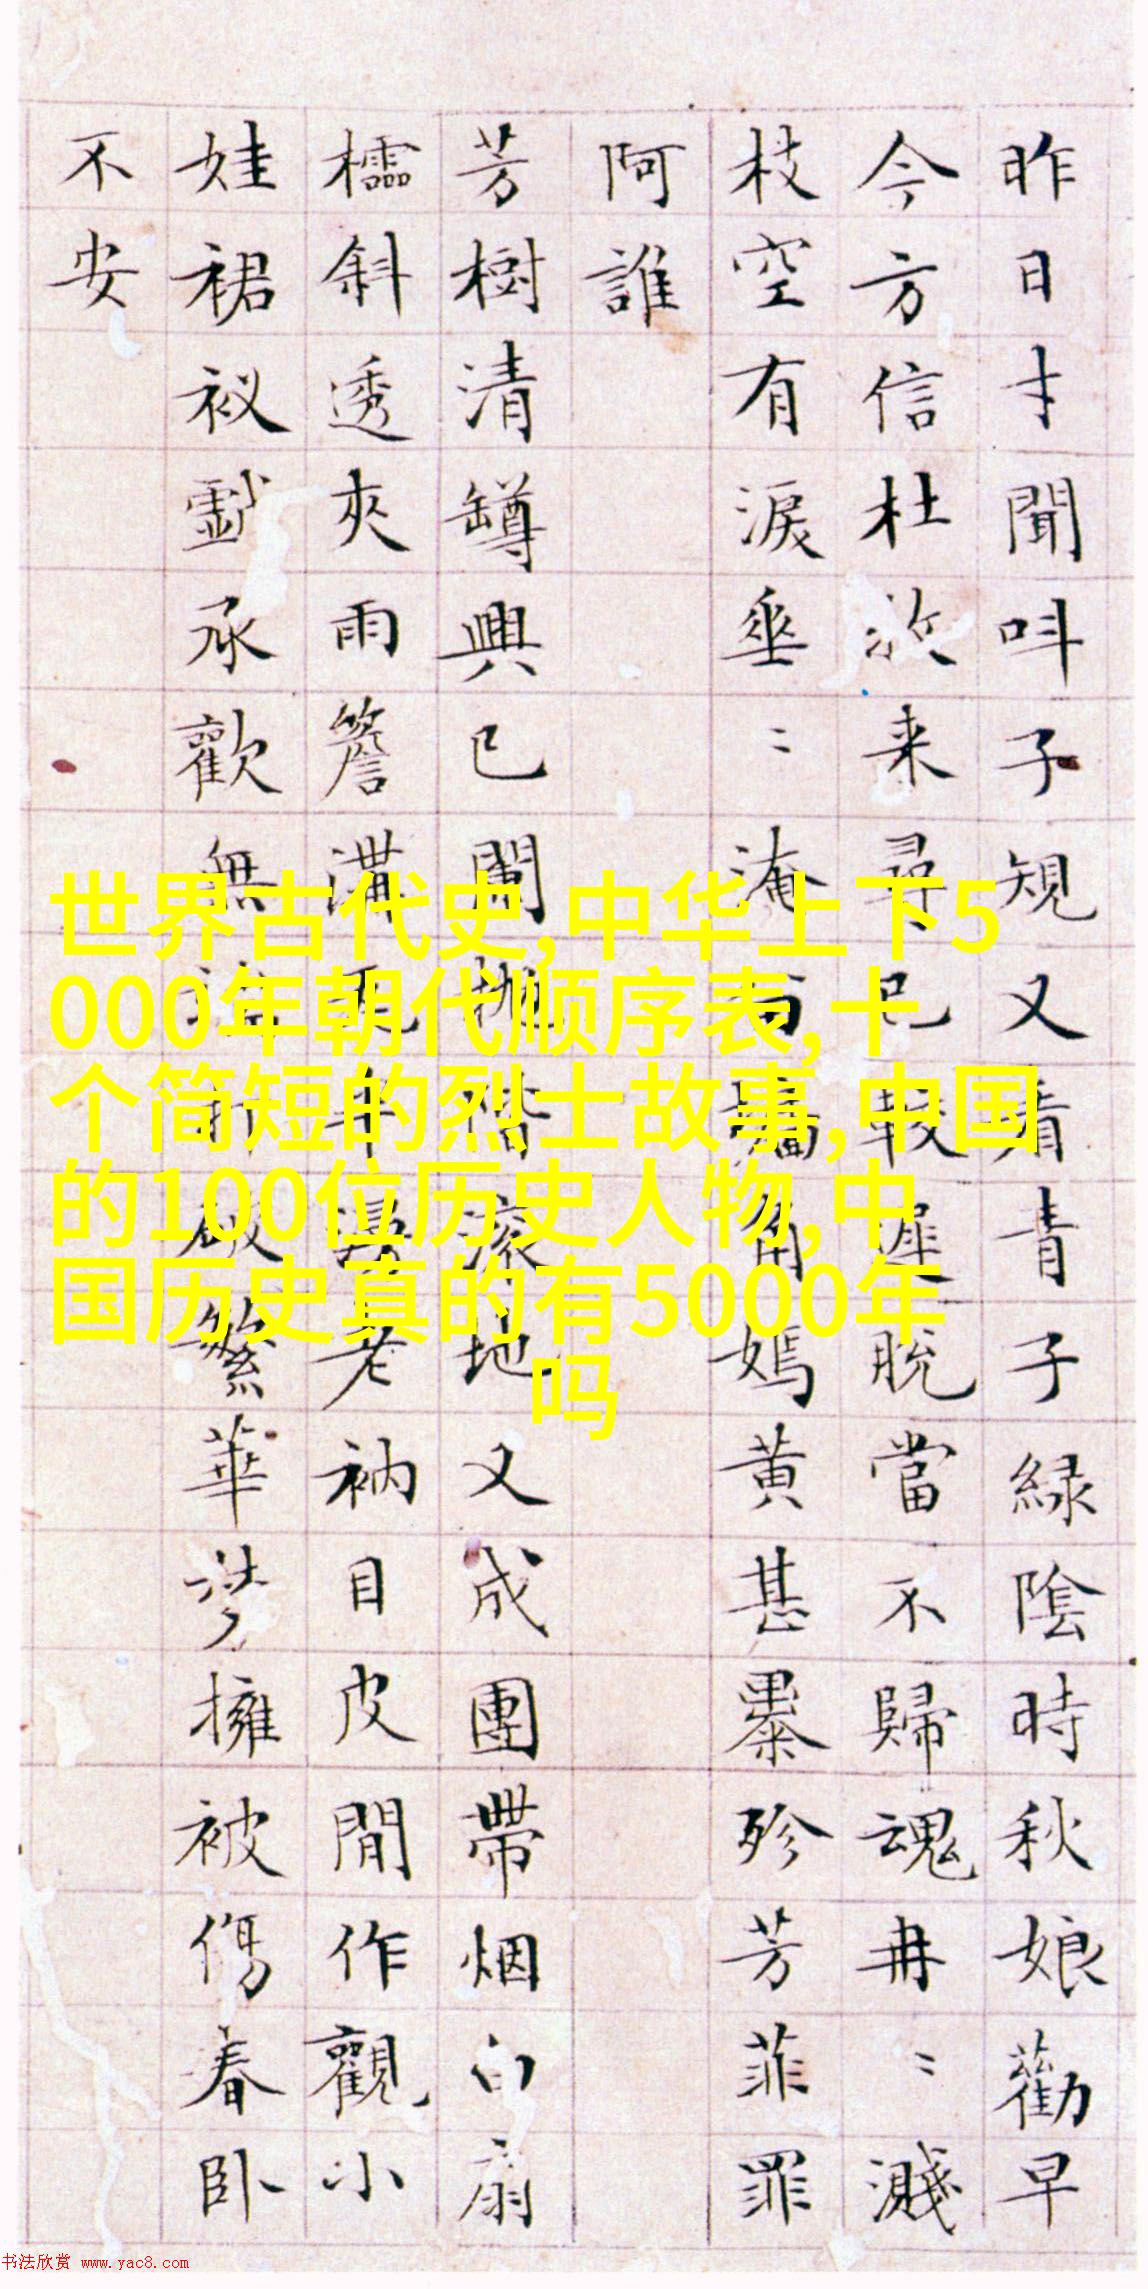 昨日才聞叫子規又看青子緑陰時秋娘勸早
今方信杜牧来尋已較遲脱當不歸魂冉〻濺
枝空有淚垂〻淹
嫣黄甚黍殄芳菲罪
阿誰
芳樹清罇興已闌抛堦滚地又成團帶烟白扇
櫺斜透夾雨簷溝瓦半
老衲目皮閒作觀小
娃裙衩戲承歡無
繁華夢擁被傷春卧
不安
世界古代史,中华上下5
000年朝代顺序表,十
个简短的烈士故事,中国
的100位历史人物,中
国历史真的有5000年
吗
书法欣赏 www.yac8.com